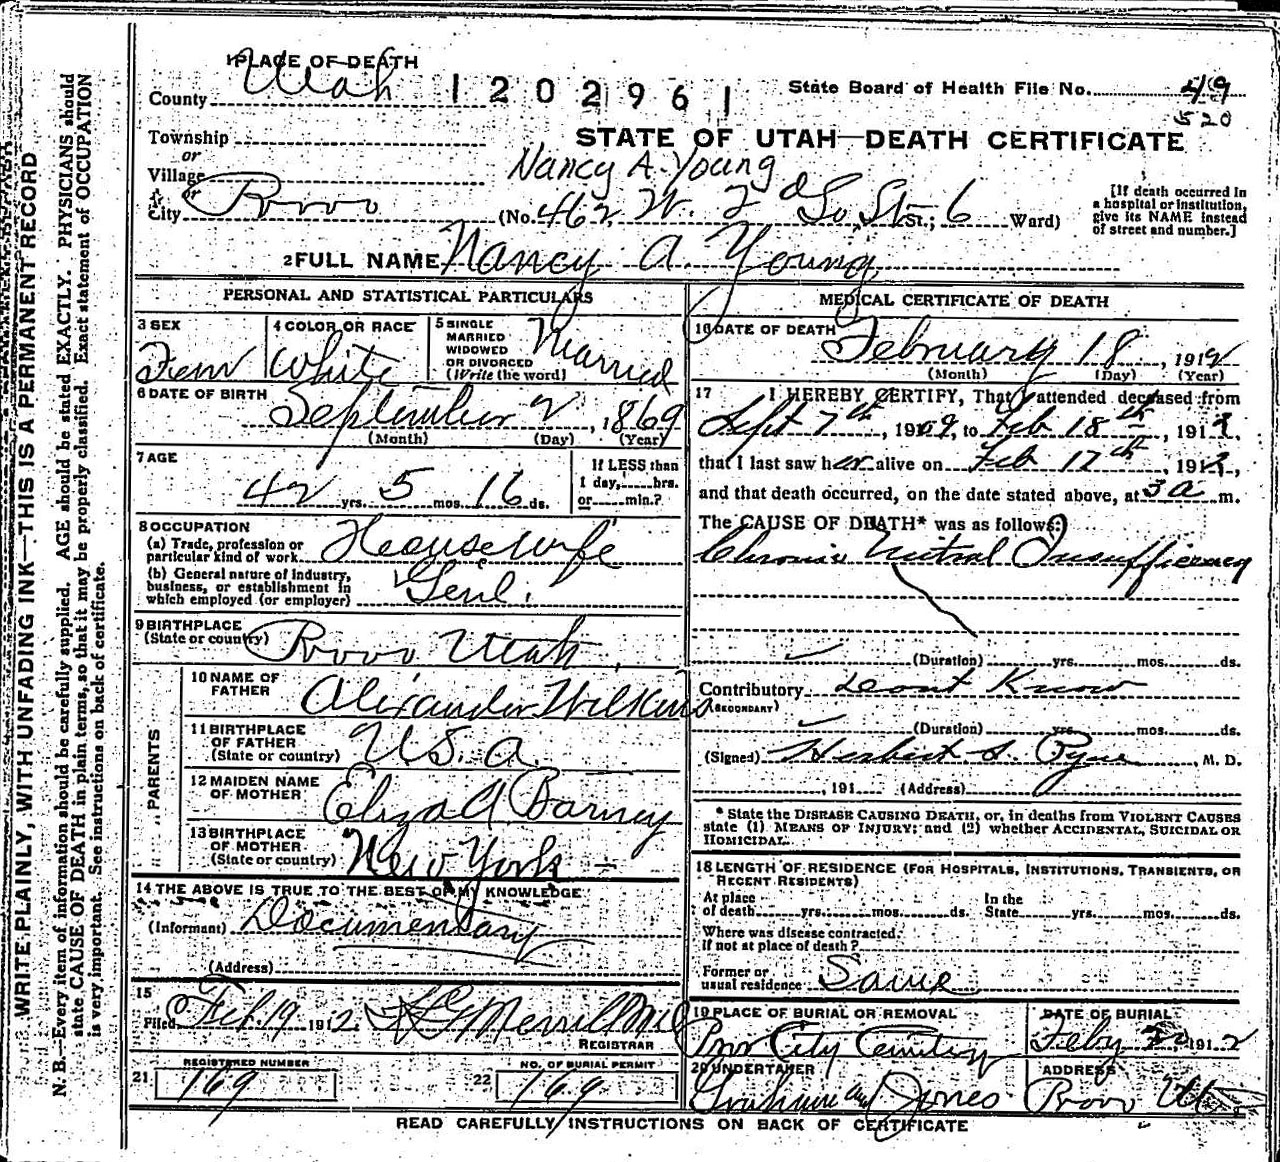 WRITE PLAINLY, WITH UNFADING INK—THIS IS A PERMANENT RECORD
N. B.—Every item of information should be carefully supplied. AGE should be stated EXACTLY. PHYSICIANS should
state CAUSE OF DEATH in plain terms, so that it may be properly classified. Exact statement of OCCUPATION
is very important. See instructions on back of certificate.
1 PLACE OF DEATH
County Utah
1202961
State Board of Health File No. 49
520
Township
or
Village
or
City Provo
STATE OF UTAH—DEATH CERTIFICATE
Nancy A. Young
(No. 462 W. 2d So St St.; 6 Ward)
[If death occurred in
a hospital or institution,
give its NAME instead
of street and number.]
2 FULL NAME Nancy A. Young
PERSONAL AND STATISTICAL PARTICULARS
3 SEX
Fem
4 COLOR OR RACE
White
5 SINGLE
MARRIED
WIDOWED
OR DIVORCED
(Write the word)
Married
6 DATE OF BIRTH
September 2, 1869
(Month) (Day) (Year)
7 AGE
42 yrs. 5 mos. 16 ds.
If LESS than
1 day, hrs.
or min.?
8 OCCUPATION
(a) Trade, profession or
particular kind of work Housewife
(b) General nature of industry,
business, or establishment in
which employed (or employer) Genl.
9 BIRTHPLACE
(State or country) Provo Utah
PARENTS
10 NAME OF
FATHER Alexander Wilkins
11 BIRTHPLACE
OF FATHER
(State or country) U.S.A.
12 MAIDEN NAME
OF MOTHER Eliza A Barney
13 BIRTHPLACE
OF MOTHER
(State or country) New York
14 THE ABOVE IS TRUE TO THE BEST OF MY KNOWLEDGE
(Informant) Documentary
(Address)
15
Filed Feb. 19 1912 Merrill
REGISTRAR
21 REGISTERED NUMBER
169
22 NO. OF BURIAL PERMIT
169
MEDICAL CERTIFICATE OF DEATH
16 DATE OF DEATH
February 18, 1912
(Month) (Day) (Year)
17 I HEREBY CERTIFY, That I attended deceased from
Sept 7th, 1909, to Feb 18th, 1912,
that I last saw her alive on Feb 17th, 1912,
and that death occurred, on the date stated above, at 3 a m.
The CAUSE OF DEATH* was as follows:
Chronic Mitral Insufficiency
(Duration) yrs. mos. ds.
Contributory Dont Know
(SECONDARY)
(Duration) yrs. mos. ds.
(Signed) Herbert S. Pyne, M. D.
, 191 (Address)
* State the DISEASE CAUSING DEATH, or, in deaths from VIOLENT CAUSES
state (1) MEANS OF INJURY; and (2) whether ACCIDENTAL, SUICIDAL OR
HOMICIDAL.
18 LENGTH OF RESIDENCE (FOR HOSPITALS, INSTITUTIONS, TRANSIENTS, OR
RECENT RESIDENTS)
At place
of death yrs. mos. ds.
In the
State yrs. mos. ds.
Where was disease contracted,
if not at place of death?
Former or
usual residence Same
19 PLACE OF BURIAL OR REMOVAL
Provo City Cemetery
DATE OF BURIAL
Feby 1912
20 UNDERTAKER
Graham and Jones
ADDRESS
Provo Ut
READ CAREFULLY INSTRUCTIONS ON BACK OF CERTIFICATE